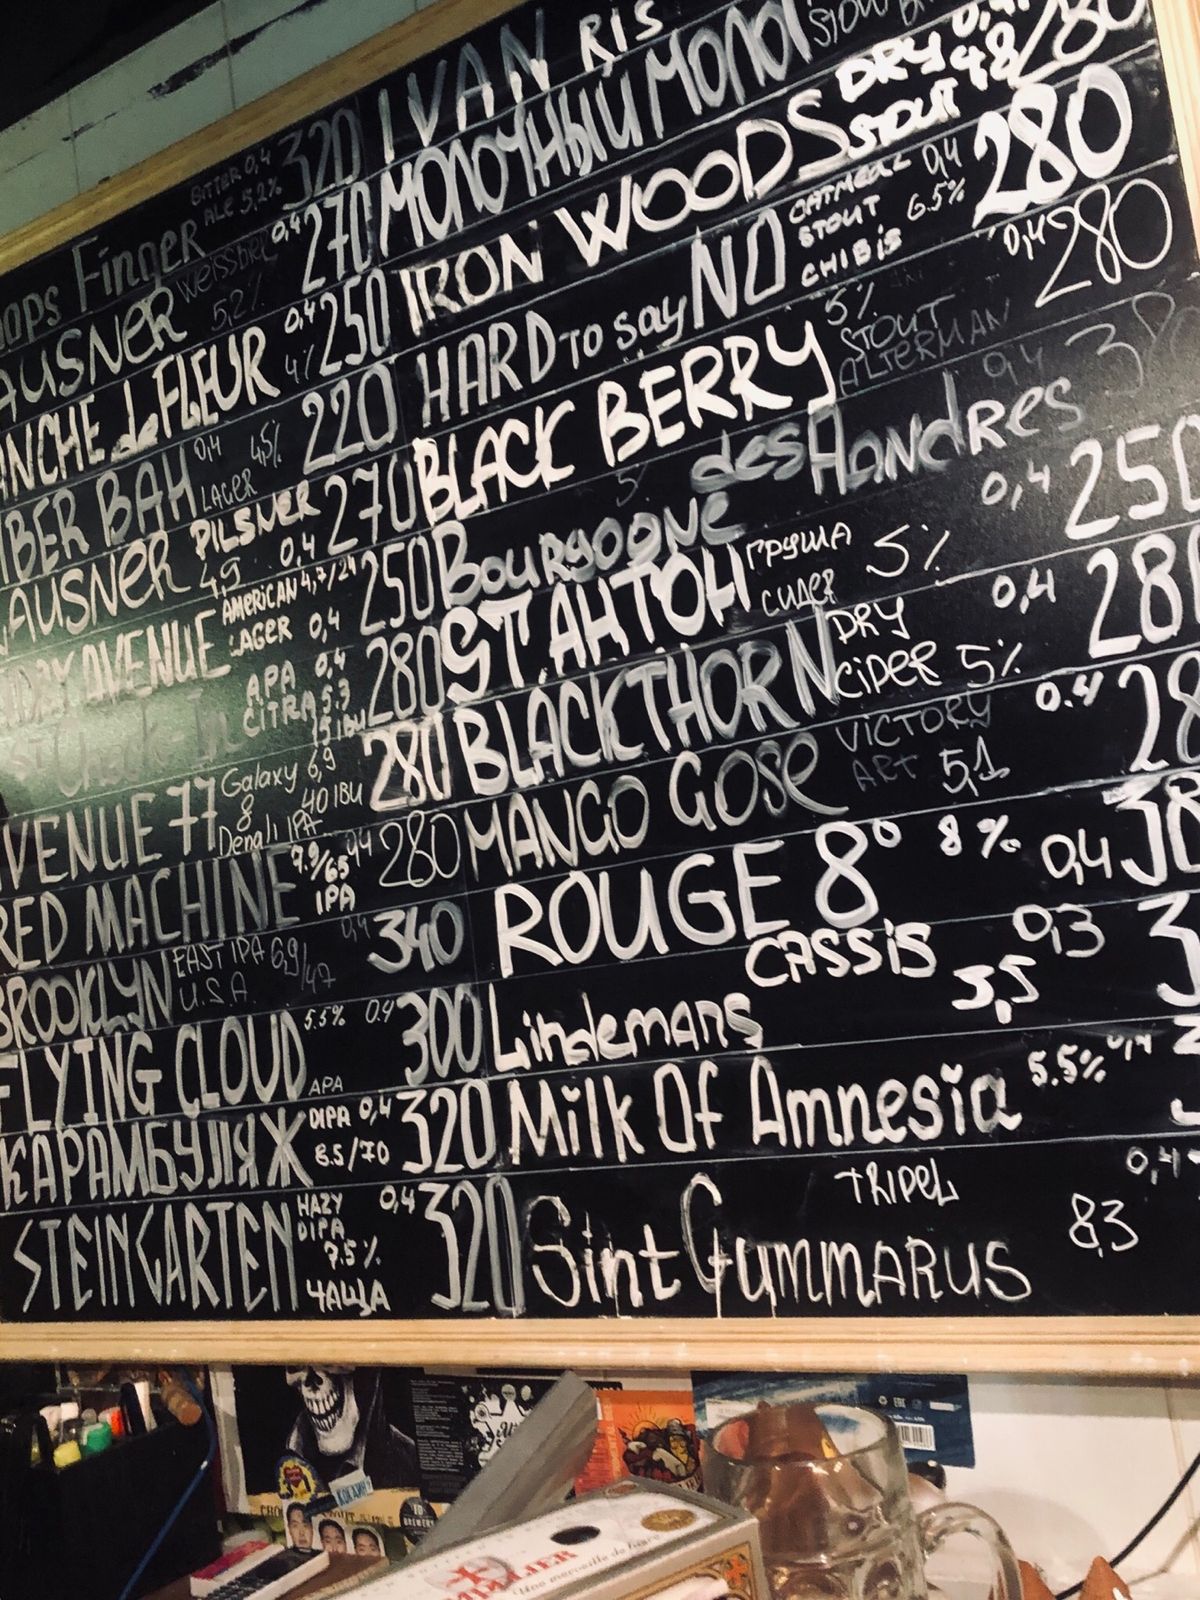 Finger BITTER 0,4 ALE 5,2% 320
AUSNER weissbier 5,2% 0,4 270
ANCHE de FLEUR 0,4 4% 250
IBER BAH 0,4 LAGER 4,5% 220
AUSNER PILSNER 4,9 0,4 270
AVENUE AMERICAN LAGER 4,7/24 0,4 250
Check-In APA CITRA 0,4 5.3 280
VENUE 77 Galaxy 6,9 8 40 IBU Denali IPA 280
RED MACHINE 7.9/65 IPA 280
BROOKLYN EAST IPA 6,9/47 U.S.A. 0,4 340
FLYING CLOUD 5.5% 0.4 APA 300
КАРАМБУЛЯЖ DIPA 0,4 8.5/70 320
STEINGARTEN HAZY DIPA 7.5% ЧАЩА 0,4 320
IVAN RIS
МОЛОЧНЫЙ
IRON WOODS DRY STOUT 0,4 4,8 280
HARD TO say NO OATMEAL STOUT CHIBIS 0,4 6.5% 280
BLACK BERRY 5% STOUT ALTERMAN 0,4 280
Bourgogne des Flandres 5 0,4
ST АНТОН ГРУША СИДЕР 5% 0,4 250
BLACKTHORN DRY CIDER 5% 0,4
MANGO GOSE VICTORY ART 5,1 0.4
ROUGE 8° 8% 0,4
Lindemans CASSIS 3,5 0,3
Milk Of Amnesia 5.5% 0,4
Sint Gummarus TRIPEL 8,3 0,4